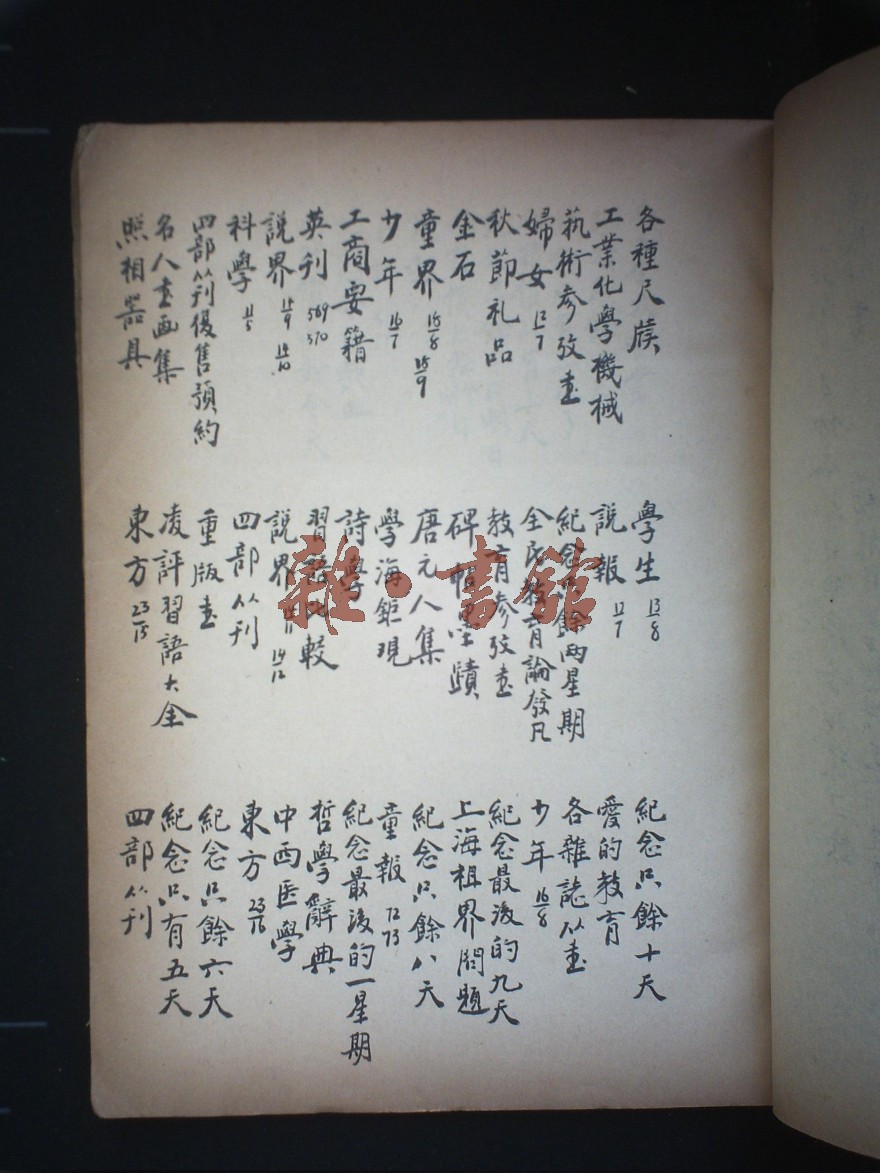 各種尺牘
工業化學機械
藝術參攷書
婦女 12/7
秋節礼品
金石
童界 15/8 15/9
少年 16/7
工商要籍
英刊 569 570
說界 14/9 14/10
科學 11/5
四部丛刊後售預約
名人畫画集
照相器具
學生 13/8
說報 17/7
紀念只餘兩星期
全民教育論發凡
教育參攷書
碑帖墨蹟
唐元人集
學海鉅現
詩學
習語比較
說界 14/11 14/12
四部丛刊
重版書
凌評習語大全
東方 23/15
紀念只餘十天
愛的教育
各雜誌丛書
少年 16/8
紀念最後的九天
上海租界問題
紀念只餘八天
童報 72 73
紀念最後的一星期
哲學辭典
中西医學
東方 23/16
紀念只餘六天
紀念只有五天
四部丛刊
雜·書館